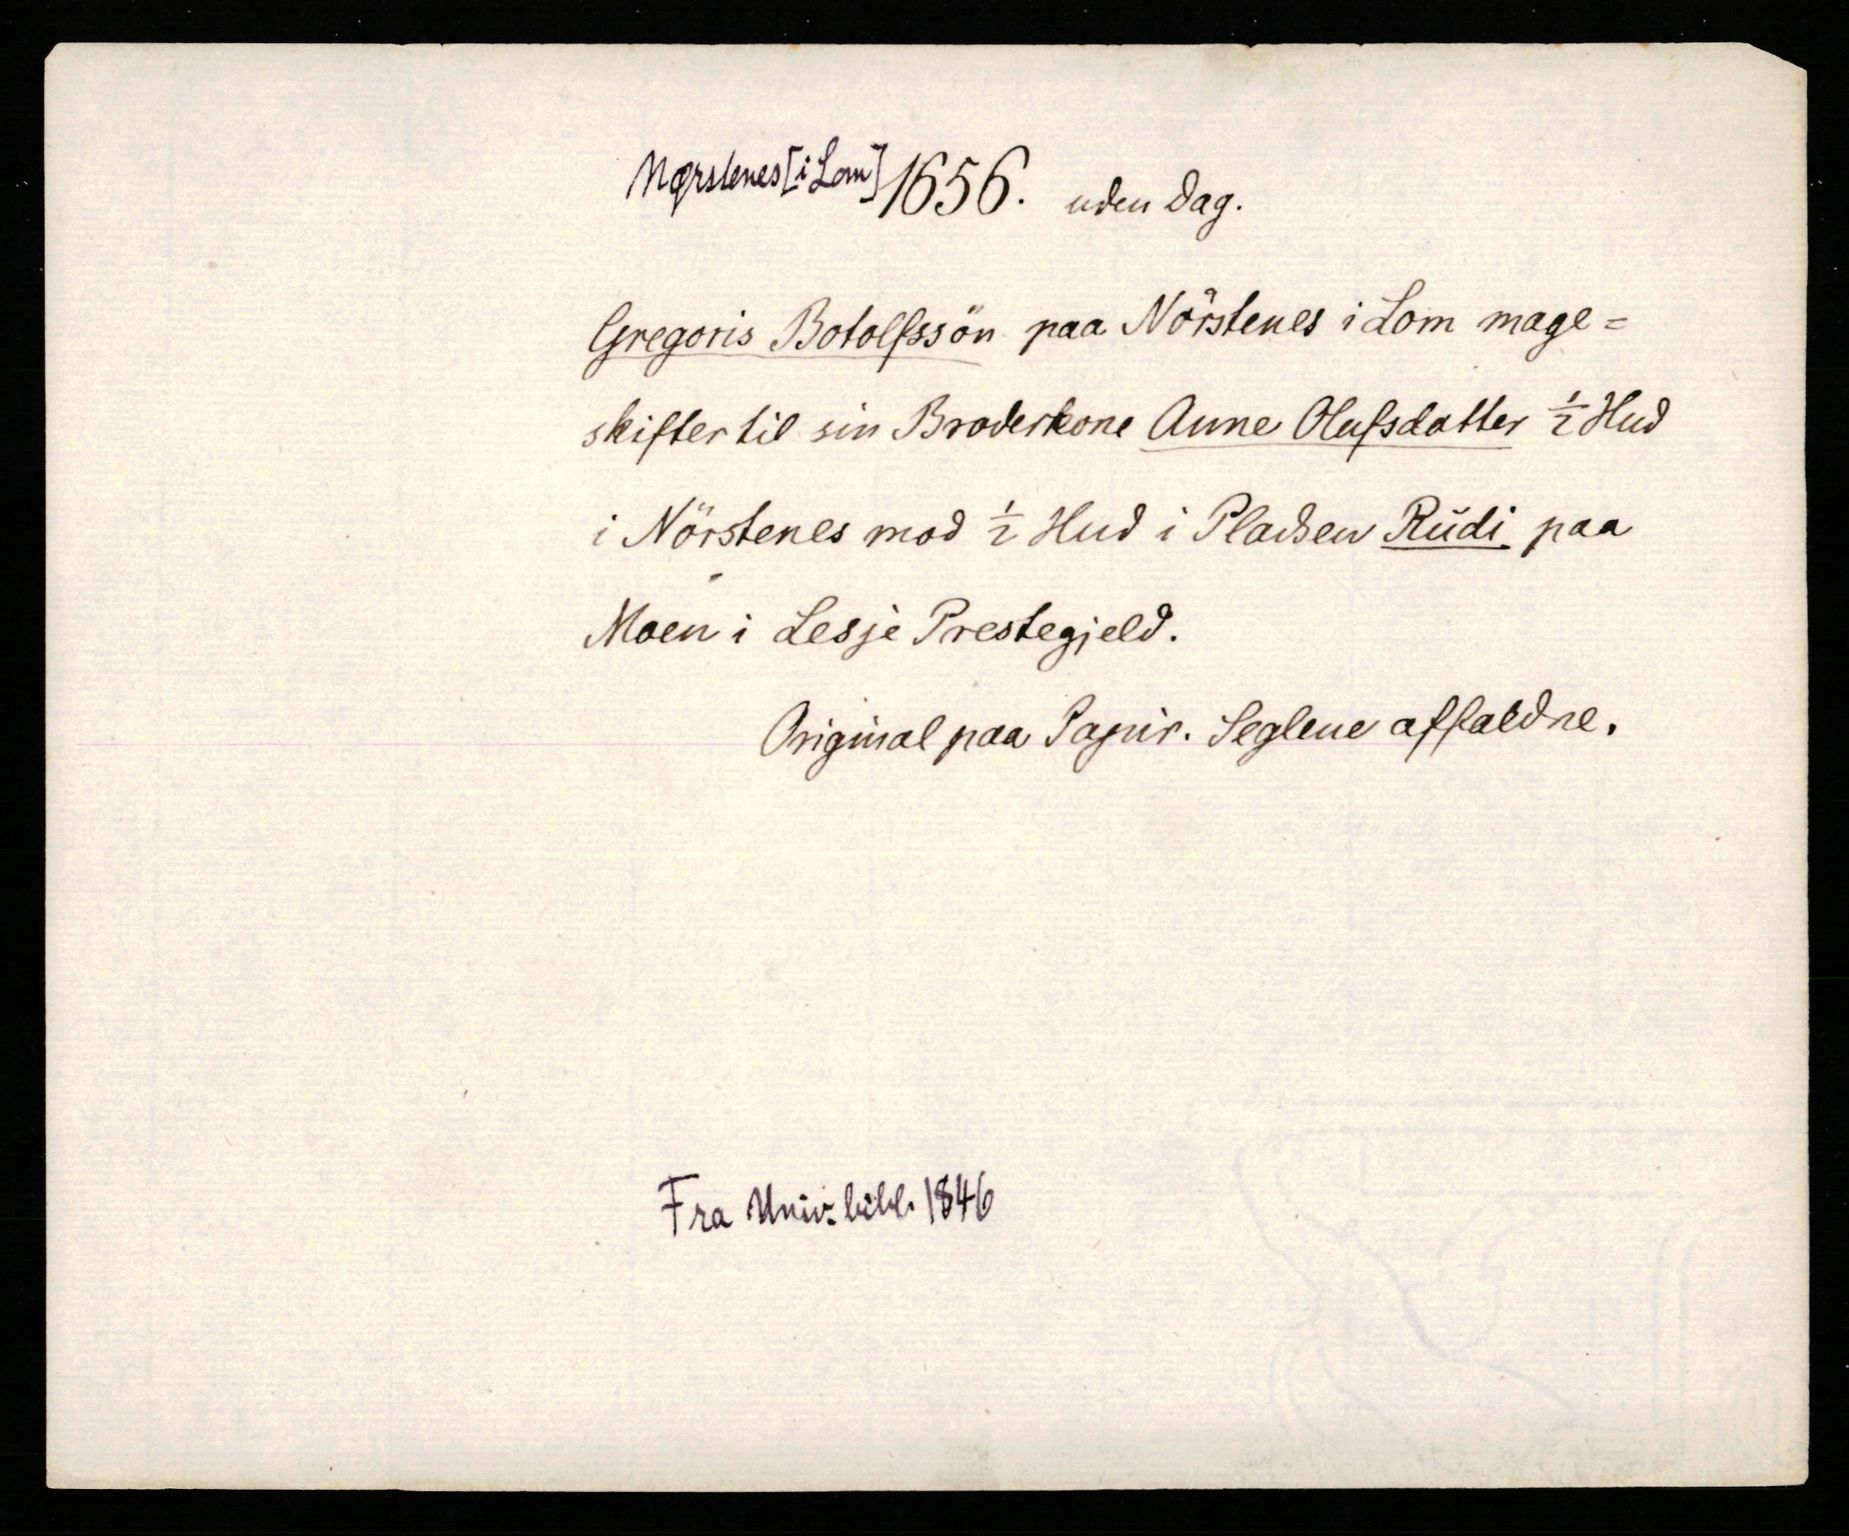 Nørstenes [i Lom] 1656. uden Dag.
Gregoris Botolfssön paa Nörstenes i Lom mage=
skifter til sin Broderkone Anne Olufsdatter ½ Hud
i Nörstenes mod ½ Hud i Pladsen Rudi paa
Moen i Lesje Prestegjeld.
Original paa Papir. Seglene affaldne.
Fra Univ. bibl. 1846